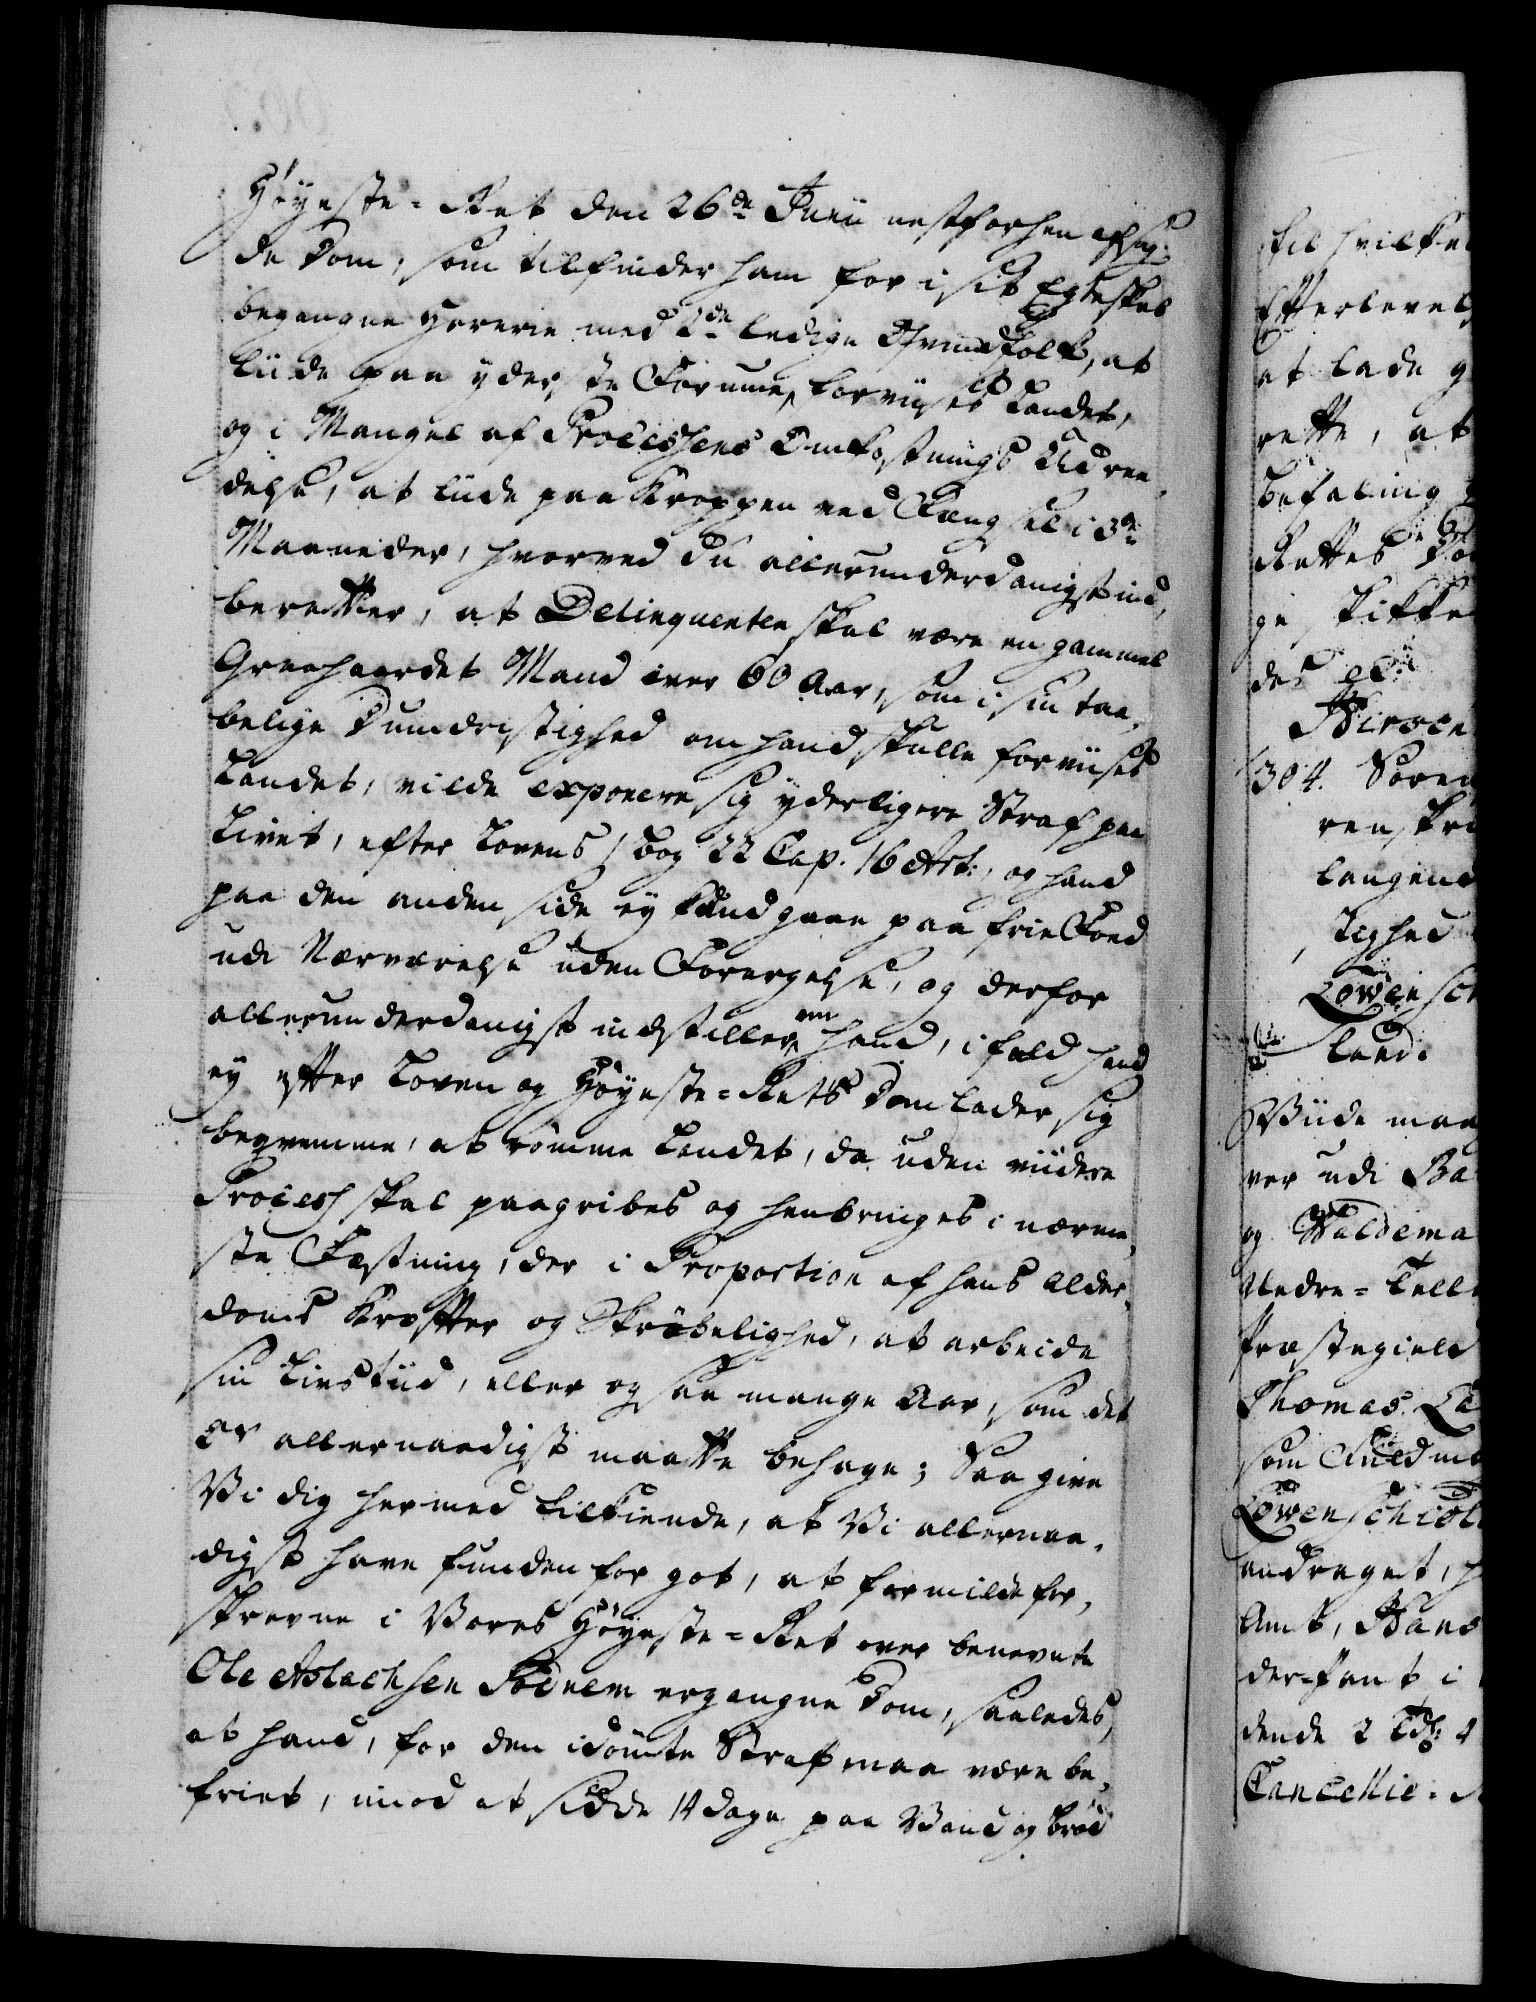 Høyeste-Ret den 26de Junii nestforhen afsag-
de Dom, som tilfinder ham for i sit Egteskab
begangne Hererie med 2de ledige Qvindfolk, at
liide paa yderste Formue, forviises Landet,
og i Mangel af Processens Omkostnings Udree-
delse, at liide paa Kroppen ved Fængsel i 3de
Maaneder, hvorved du allerunderdanigst ind-
beretter, at Delinqventen skal være en gammel
Graahaardet Mand over 60 Aar, som i sin taa-
belige Dumdristighed om hand skulle forviises
Landet, vilde exponere sig yderligere Straf paa
Livet, efter Lovens 1 Bog 22 Cap. 16 Art:, og hand
paa den anden side ey kand gaae paa frie Foed
udi Nærværelse uden Forargelse, og derfor
allerunderdanigst indstiller, om hand, i fald hand
ey efter Loven og Høyeste-Rets Dom lader sig
beqvemme, at römme Landet, da uden viidere
Process skal paagribes og henbringes i nærme-
ste Fæstning, der i Proportion af hans Alder-
doms Kræfter og Skröbelighed, at arbeide
sin Lives tiid, eller og saa mange Aar, som det
Os allernaadigst maatte behage; Saa give
Vi dig hermed tilkiende, at Vi allernaa-
digst have funden for got, at formilde for-
skrevne i Vores Høyeste-Ret over benevnte
Ole Aslachsen Födnem ergangne Dom, saaledes,
at hand, for den idömte Straf maa være be-
friet, imod at sidde 14 dage paa Vand og bröd
til hvilken
Efterlevels
at lade g
rette, at
Befaling
Rettes Do
ge Sikke
des
304. Soren
ren skri
langend
tighed
Löwensch
land.
Viide maa
ver udi Ba
og Valdema
Nedre-Telle
Præstegield
Thomas
som Fuldmæ
Löwenschiold
andraget, h
Amt, Hans
der-fant i
dende 2
Cancellie-R